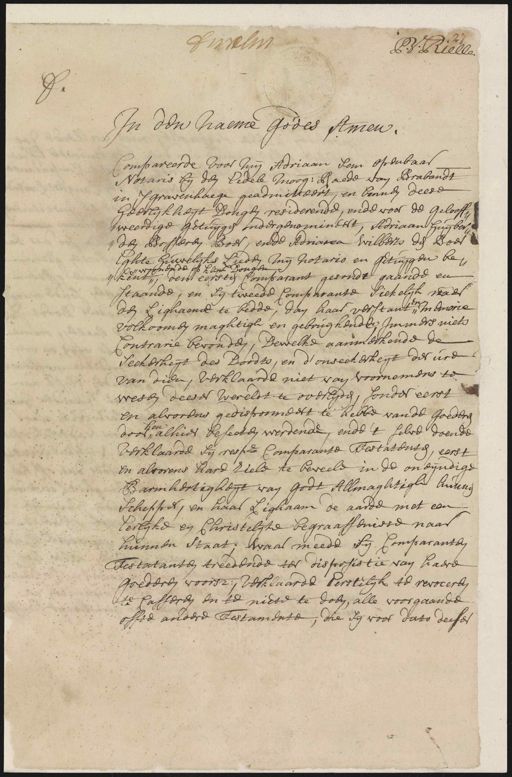 In den Naeme Godes Amen.
Compareerde voor mij Adriaan openbaar
Notaris bij den Edele Moog: Raede van Brabandt
in 's gravenhaege geadmitteert, en binnen deese
Heerlijkheijt Dongen residerende, ende voor de geloof-
weerdige getuijgen ondergenomineert, Adriaan
de Bosser Boer, ende Adriaena Willems de Boer
Egte Huwelijke Lieden mij Notaris en getuijgen be-
kent, den eersten Comparant gesondt gaande en
staande, en sij tweede Comparante Siekelijk naer
den Lighaeme te bedde, dog haer verstant en Memorie
volkoomen maghtigh en gebruijkende, Immers niets
Contrarie bevonden, Dewelke aenmerkende de
Seekerheijt des Doodts, en d'onseekerheijt der ure
van dien, verklaarde niet van voornemens te
weesen deeser Werelt te overlijden, sonder eerst
en alvorens gedisponeert te hebben van de goederen
door hen alhier beseeten werdende, ende 't selve doende
verklaarde sij respve Comparante Testateuren, eerst
en alvorens haere Ziele te beveele in de oneijndige
Barmhertigheijt van Godt Allmaghtigh haeren
Schepper, en haer Lighaam de aarde met een
eerlijke en Christelijke begraaffenisse naar
hunnen Staat; waar meede sij Comparanten
Testatanten treedende ter dispositie van haere
goederen voorsz, verklaarde Eerstelijk te revoceren
te Casseren en te niete te doen, alle voorgaande
ofte andere Testamenten, die sij voor dato deeser